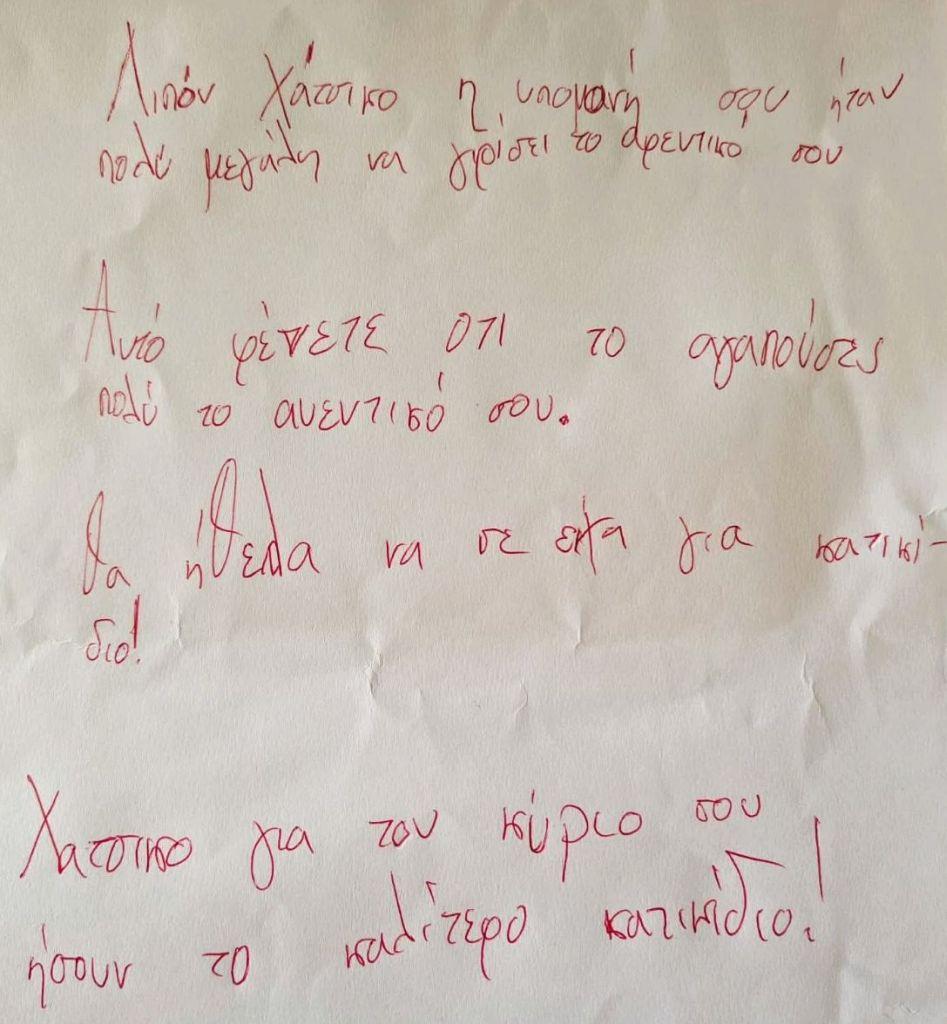 Λιπόν Χάτσικο η υπομανή σου ήταν
πολύ μεγάλη να γιρίσει το αφεντικό σου
Αυτό φένετε ότι το αγαπούσες
πολύ το αυεντικό σου.
Θα ήθελα να σε είχα για κατικί-
διο!
Χατσικο για τον κύριο σου
ήσουν το καλίτερο κατικίδιο!